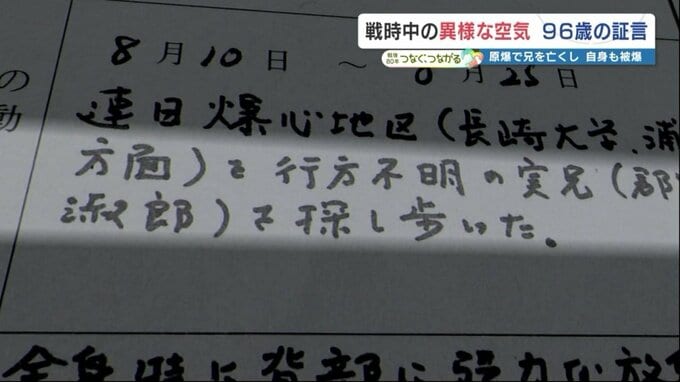 戦時中の異様な空気 96歳の証言
戦後80年 つなぐ、つながる 原爆で兄を亡くし 自身も被爆
8月10日 ~ 8月25日
の
動
連日爆心地区(長崎大学、浦
方面)を行方不明の実兄(郡
淑郎)を探し歩いた。
全身時に背部に強力な放